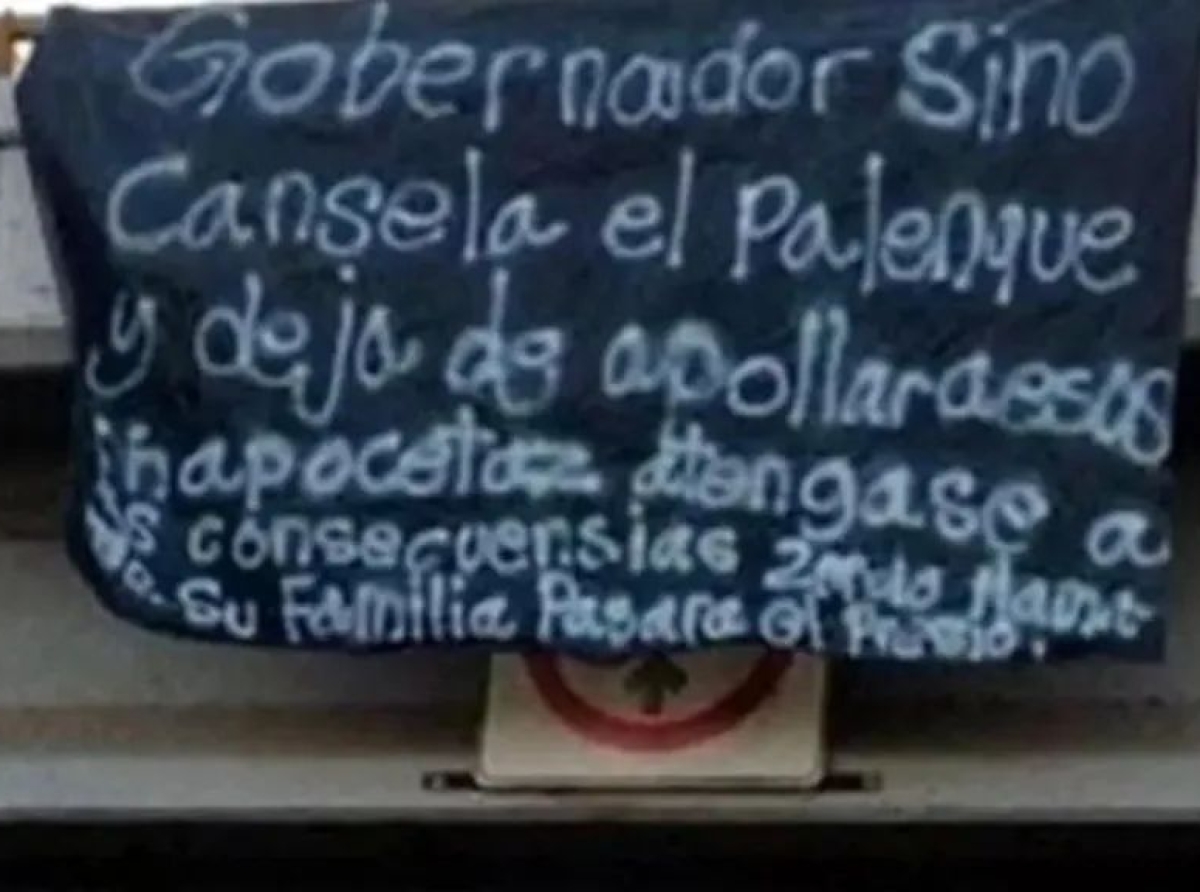 Gobernador Sino
Cansela el Palenque
y deja de apollar a esos
inapocetaz atengase a
las consecuensias 2ndo
Su Familia Pagara el